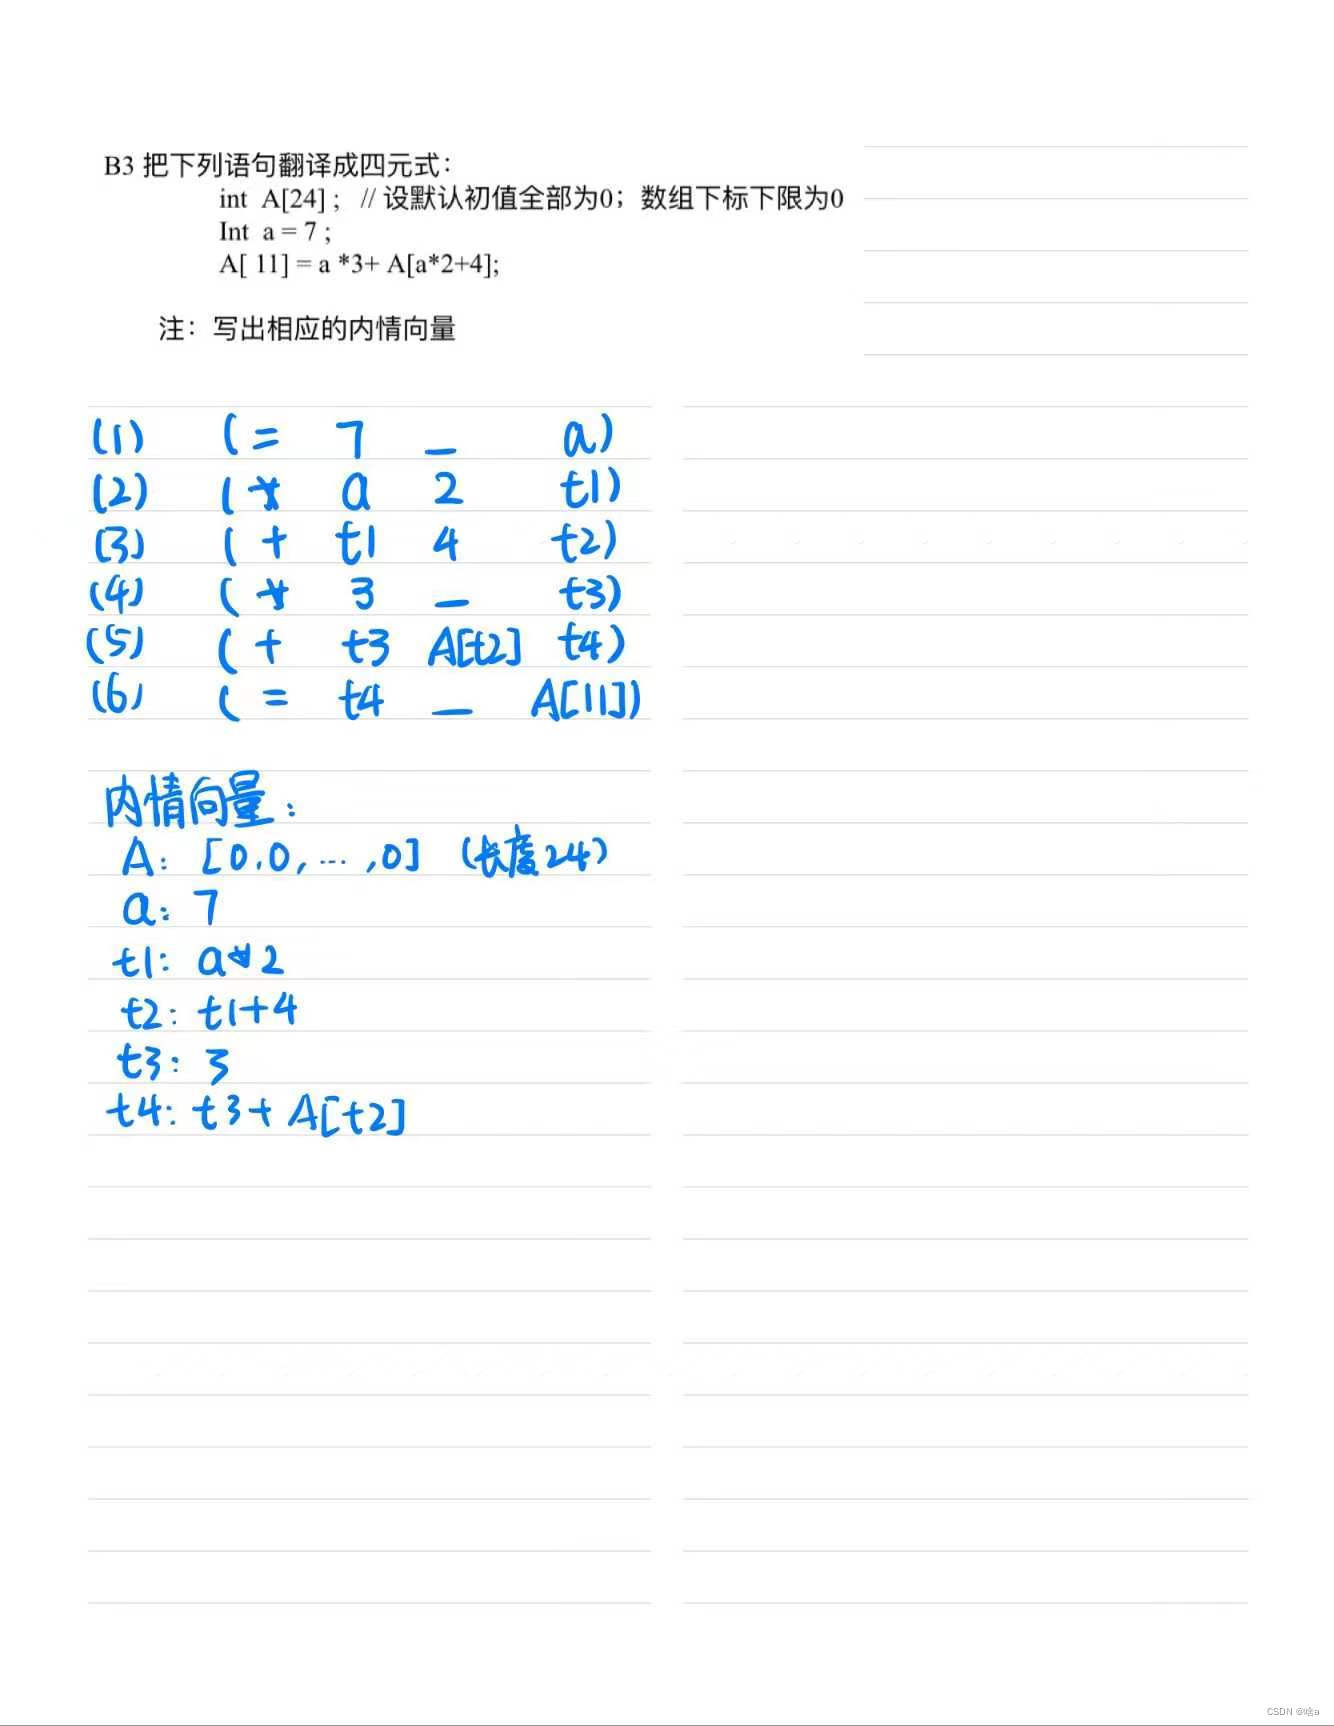 B3 把下列语句翻译成四元式：
int A[24] ; // 设默认初值全部为0；数组下标下限为0
Int a = 7 ;
A[ 11] = a *3+ A[a*2+4];
注：写出相应的内情向量
(1) (= 7 _ a)
(2) (* a 2 t1)
(3) (+ t1 4 t2)
(4) (* 3 _ t3)
(5) (+ t3 A[t2] t4)
(6) (= t4 _ A[11])
内情向量：
A: [0,0, ... ,0] (长度24)
a: 7
t1: a*2
t2: t1+4
t3: 3
t4: t3+A[t2]
CSDN @啥a